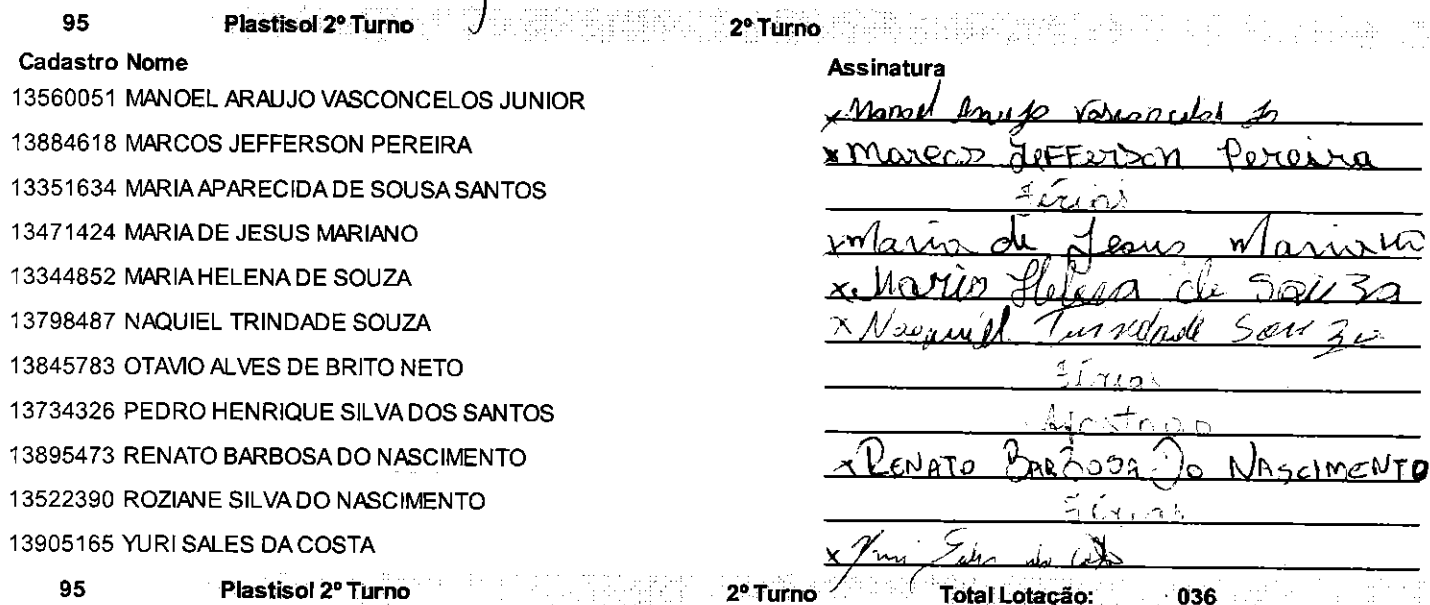 95 Plastisol 2º Turno 2º Turno
Cadastro Nome Assinatura
13560051 MANOEL ARAUJO VASCONCELOS JUNIOR x Manoel Araujo Vasconcelos Jr
13884618 MARCOS JEFFERSON PEREIRA x Marcos Jefferson Pereira
13351634 MARIA APARECIDA DE SOUSA SANTOS Férias
13471424 MARIA DE JESUS MARIANO x Maria de Jesus Mariano
13344852 MARIA HELENA DE SOUZA x Maria Helena de Souza
13798487 NAQUIEL TRINDADE SOUZA x Naquiel Trindade Souza
13845783 OTAVIO ALVES DE BRITO NETO Férias
13734326 PEDRO HENRIQUE SILVA DOS SANTOS Afastado
13895473 RENATO BARBOSA DO NASCIMENTO x RENATO BARBOSA DO NASCIMENTO
13522390 ROZIANE SILVA DO NASCIMENTO Férias
13905165 YURI SALES DA COSTA x Yuri Sales da Costa
95 Plastisol 2º Turno 2º Turno Total Lotação: 036